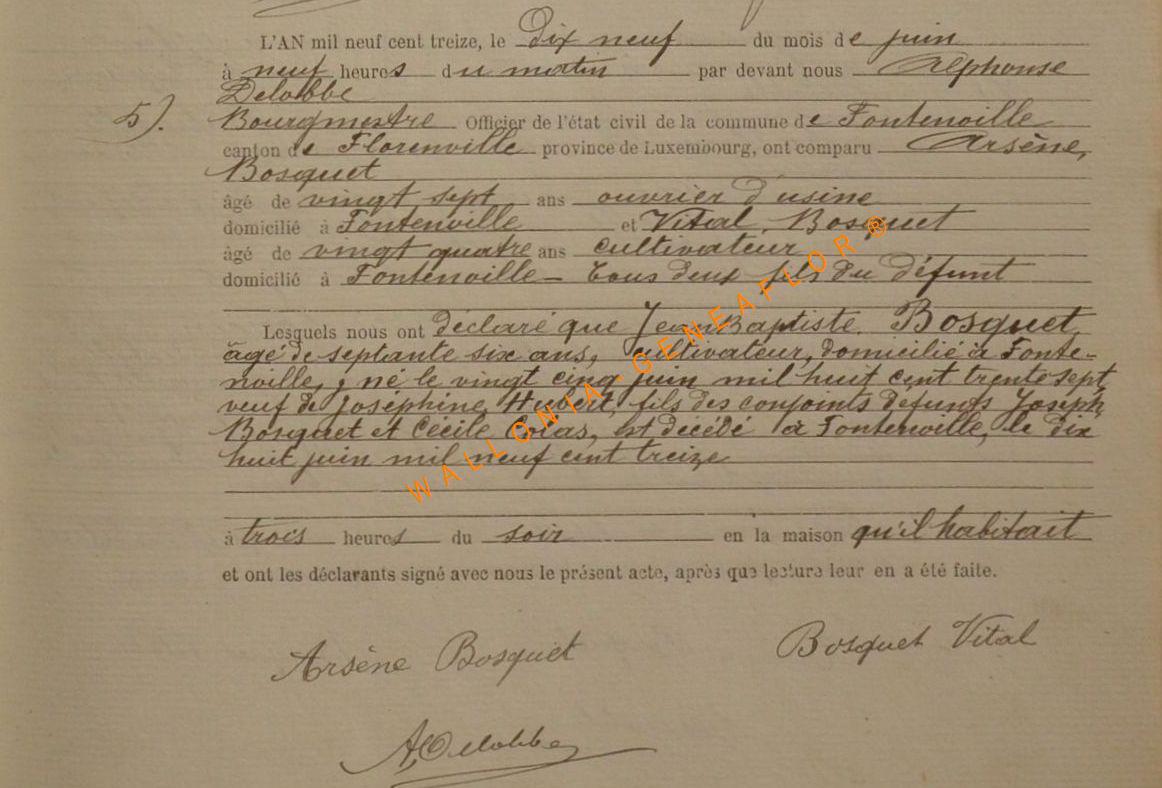 L'AN mil neuf cent treize, le Dix neuf du mois de juin
à neuf heures du matin par devant nous Alphonse
Delobbe
5). Bourgmestre Officier de l'état civil de la commune de Fontenoille
canton de Florenville province de Luxembourg, ont comparu Arsène,
Bosquet
âgé de vingt sept ans ouvrier d'usine
domicilié à Fontenville et Vital, Bosquet
âgé de vingt quatre ans cultivateur
domicilié à Fontenoille – tous deux fils du défunt
Lesquels nous ont déclaré que Jean Baptiste, Bosquet,
âgé de septante six ans, cultivateur, domicilié à Fonte-
nville, né le vingt cinq juin mil huit cent trente sept,
veuf de Joséphine, Hubert, fils des conjoints défunts Joseph,
Bosquet et Cécile, Colas, est décédé à Fontenville, le dix
huit juin mil neuf cent treize
à trois heures du soir en la maison qu'il habitait
et ont les déclarants signé avec nous le présent acte, après que lecture leur en a été faite.
Arsène Bosquet
Bosquet Vital
A Delobbe
WALLONIA-GENEAFLOR®